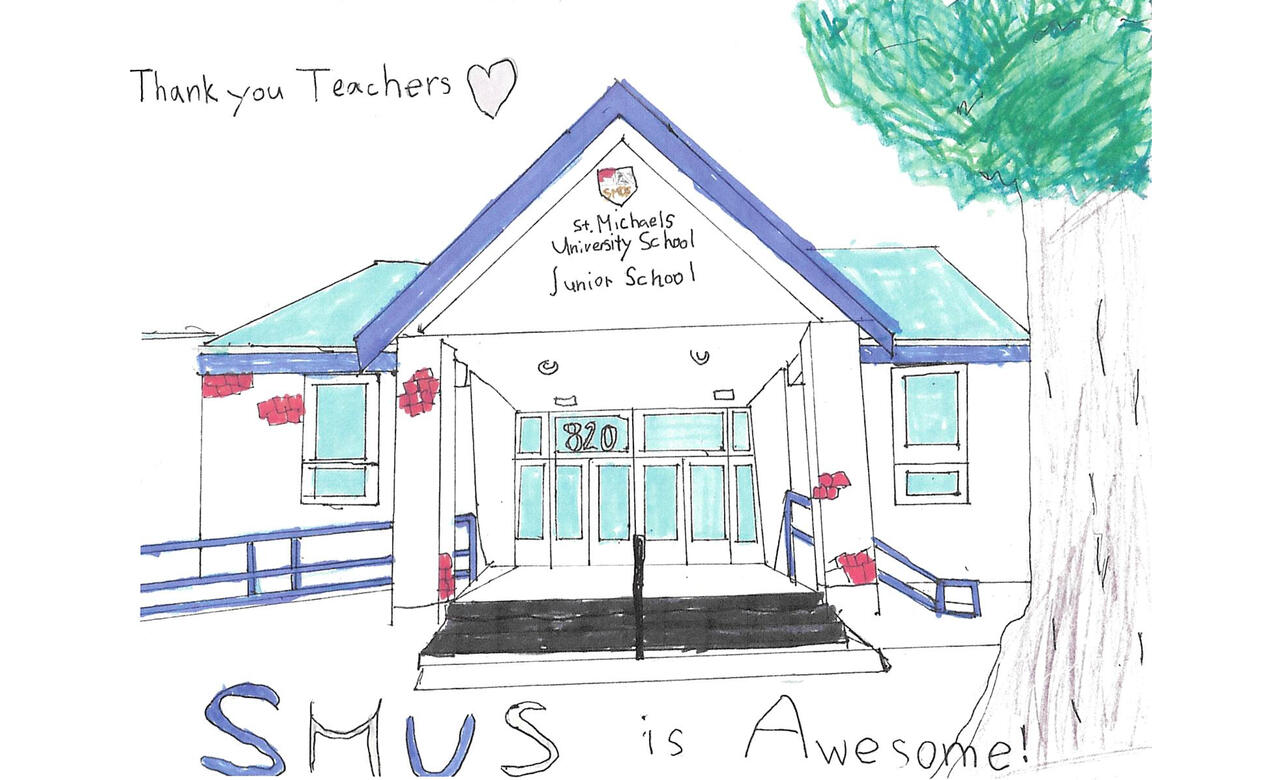 Thank you Teachers
SMUS
St. Michaels
University School
Junior School
820
SMUS is Awesome!